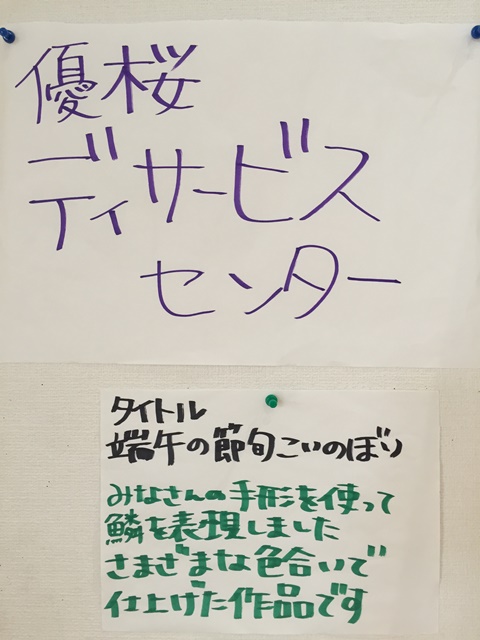 優桜
ディサービス
センター
タイトル
端午の節句こいのぼり
みなさんの手形を使って
鱗を表現しました
さまざまな色合いで
仕上げた作品です